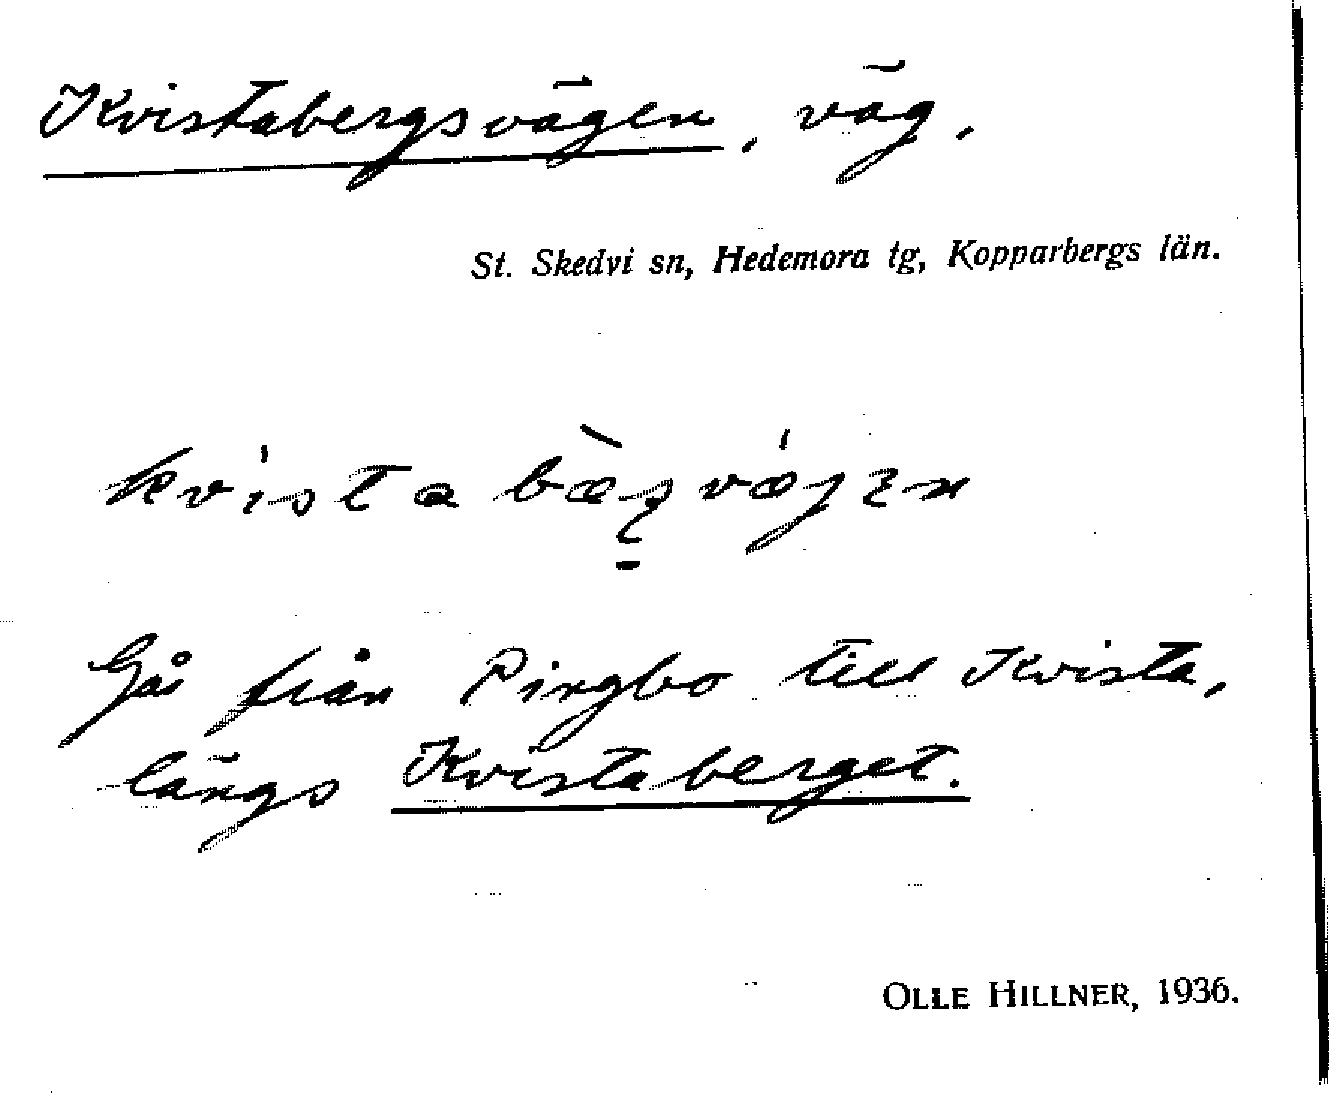 Kvistabergsvägen, väg.
St. Skedvi sn, Hedemora tg, Kopparbergs län.
Går från Pingbo till Kvista,
längs Kvistaberget.
OLLE HILLNER, 1936.